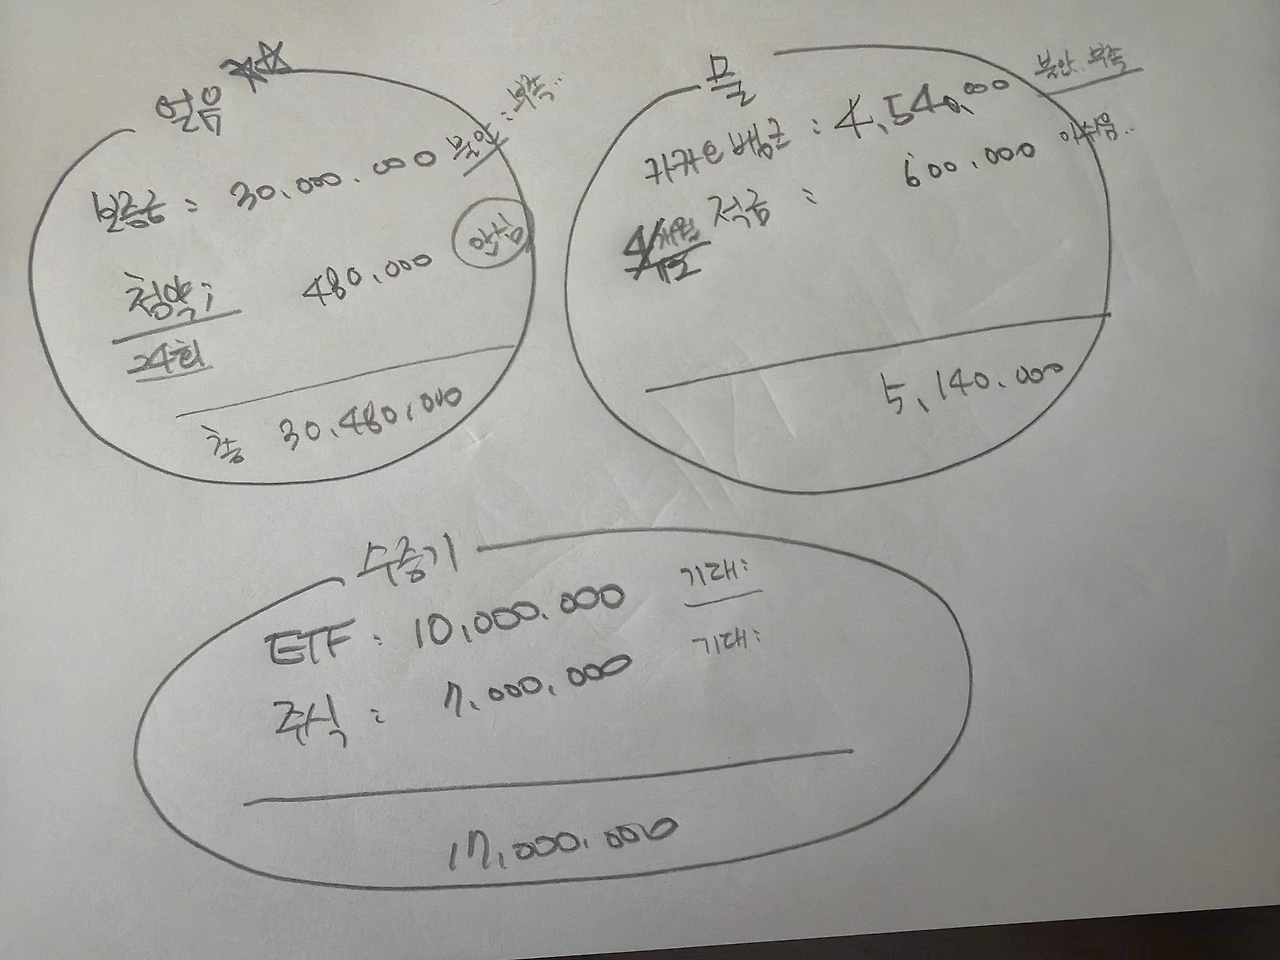 얼음
보증금 : 30.000.000 불안 : 부족..
청약 ; 480.000 안심
24회
총 30.480.000
물
불안. 부족
카카오뱅크 : 4.540.000
적금 : 600.000 아쉬움..
4/12 개월
5.140.000
수증기
ETF : 10.000.000 기대 :
주식 : 7.000.000 기대 :
17.000.000